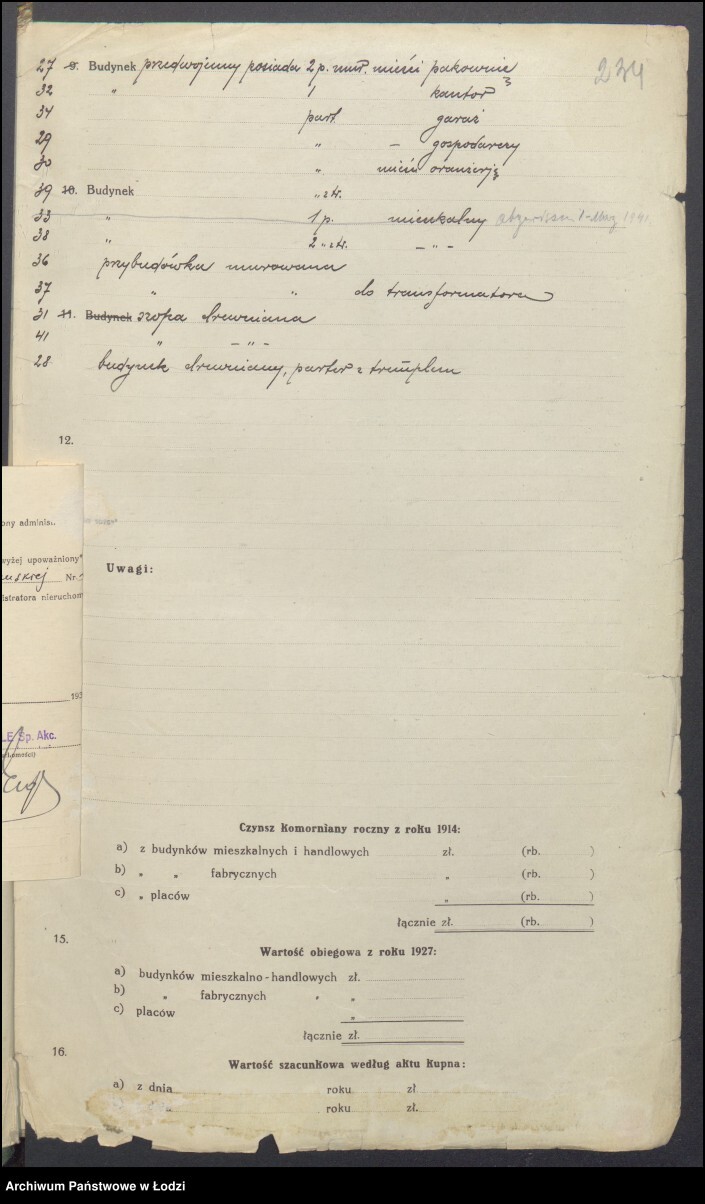 234
27 9. Budynek przedwojenny posiada 2 p. mur. mieści pakownię
32 " 1 kantor
34 part. garaż
29 " — gospodarczy
30 " mieści oranżerję
39 10. Budynek " z tr.
33 " 1 p. mieszkalny 1941
38 " 2 " z tr. — " —
36 przybudówka murowana
37 " " do transformatora
31 11. Budynek szopa drewniana
41 " — " —
28 budynek drewniany, parter z
12.
ony adminis.
wyżej upoważniony"
Nr.
istratora nieruchom
193
LE Sp. Akc.
Uwagi:
Czynsz komorniany roczny z roku 1914:
a) z budynków mieszkalnych i handlowych zł. (rb. )
b) " " fabrycznych " (rb. )
c) " placów " (rb. )
łącznie zł. (rb. )
15.
Wartość obiegowa z roku 1927:
a) budynków mieszkalno-handlowych zł.
b) " fabrycznych " "
c) placów "
łącznie zł.
16.
Wartość szacunkowa według aktu kupna:
a) z dnia roku zł
roku zł.
Archiwum Państwowe w Łodzi